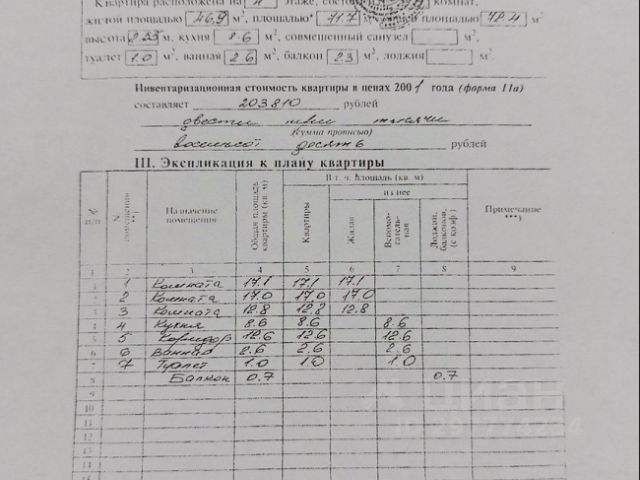 Квартира расположена на этаже, комнат,
жилой площадью 46,9 м², площадью* 71.7 площадью 72.4 м²
высота м, кухня 8.6 м², совмешенный санузел м²,
туалет 1.0 м², ванная 2.6 м², балкон 2.3 м², лоджия м².
Инвентаризационная стоимость квартиры в ценах 2001 года (форма 11а)
составляет 203810 рублей
двести три тысячи
(сумма прописью)
восемьсот десять рублей
III. Экспликация к плану квартиры
№ помещения Назначение помещения Общая площадь квартиры (кв. м) В т. ч. площадь (кв. м) Примечание
Квартиры из нее Лоджий, балконов, (с коэф.)
Жилая Вспомогательная
1 2 3 4 5 6 7 8 9
1 1 Комната 17.1 17.1 17.1
2 2 Комната 17.0 17.0 17.0
3 3 Комната 12.8 12.8 12.8
4 4 Кухня 8.6 8.6 8.6
5 5 Коридор 12.6 12.6 12.6
6 6 Ванная 2.6 2.6 2.6
7 7 Туалет 1.0 1.0 1.0
8 Балкон 0.7 0.7
9
10
11
12
13
14
15
циан